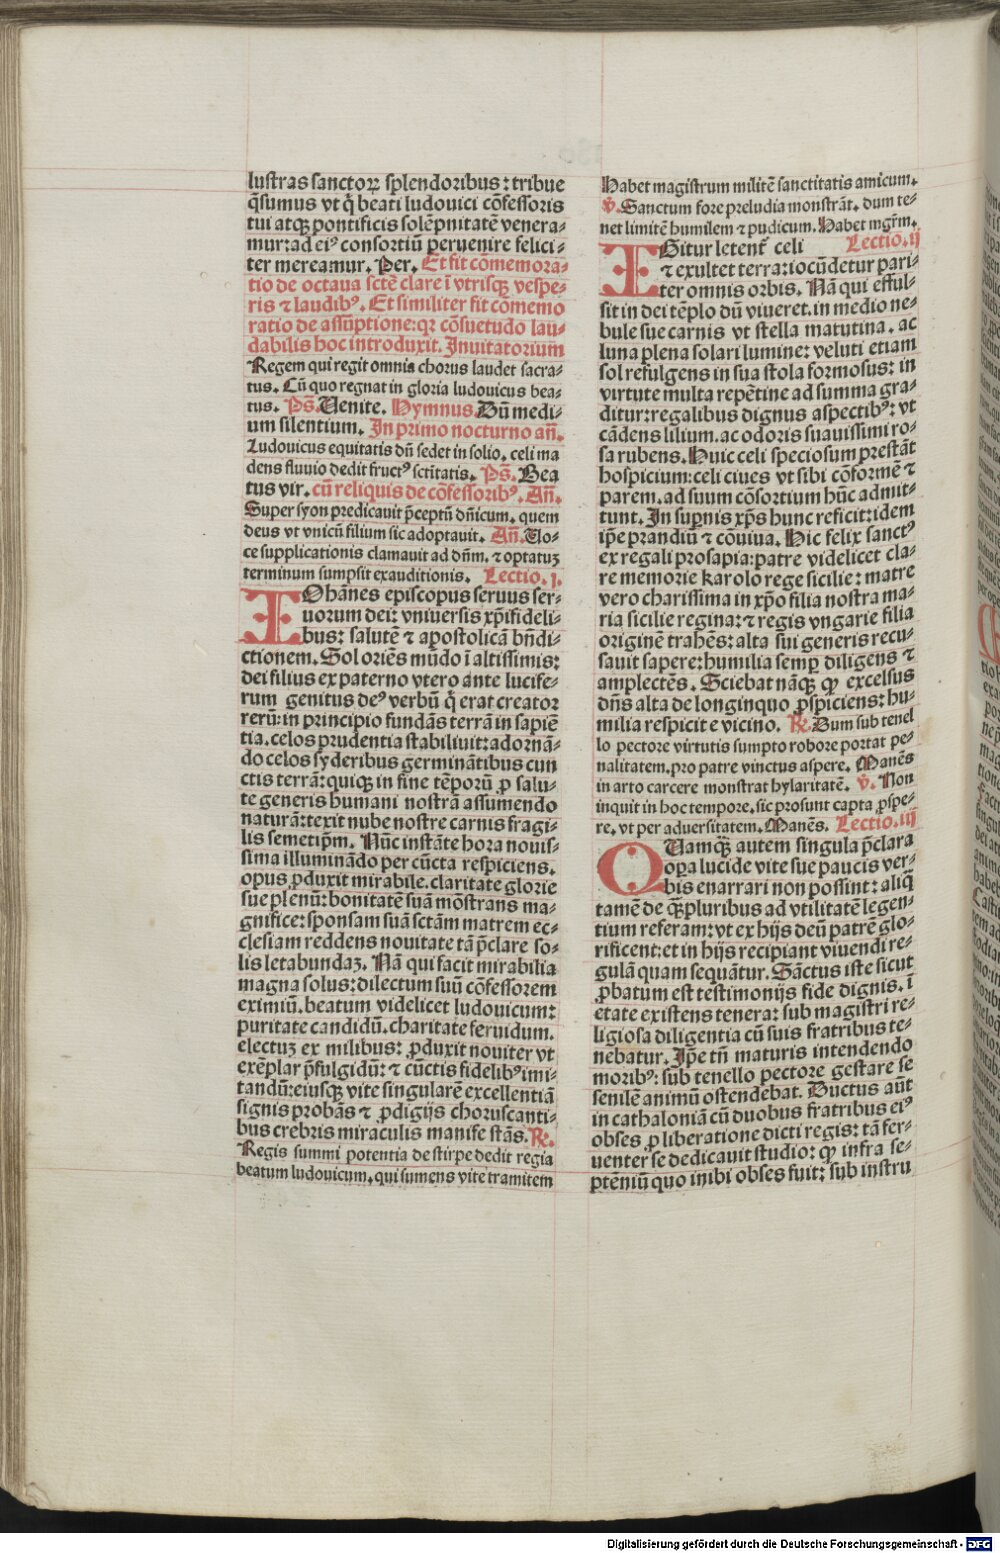 lustras sanctoꝝ splendoribus: tribue
q̄sumus vt q̄ beati ludouici cōfessoris
tui atqꝫ pontificis solēpnitatē venera-
mur: ad eiꝰ consortiū peruenire felici-
ter mereamur. Per. Et fit cōmemora-
tio de octaua sctē clare ī vtrisqꝫ vespe-
ris ⁊ laudibꝰ. Et similiter fit cōmemo
ratio de assūptione: qr cōsuetudo lau-
dabilis hoc introduxit. Inuitatorium
Regem qui regit omnis chorus laudet sacra-
tus. Cū quo regnat in gloria ludouicus bea-
tus. Ps̄. Uenite. Hymnus. Dū medi-
um silentium. In primo nocturno an̄.
Ludouicus equitatis dn̄ sedet in solio. celi ma
dens fluuio dedit fructꝰ sctītatis. Ps̄. Bea
tus vir. cū reliquis de cōfessoribꝰ. An̄.
Super syon predicauit p̄ceptū dn̄icum. quem
deus vt vnicū filium sic adoptauit. An̄. Uo-
ce supplicationis clamauit ad dn̄m. ⁊ optatuꝫ
terminum sumpsit exauditionis. Lectio. j.
IOhānes episcopus seruus ser-
uorum dei: vniuersis xp̄ifideli-
bus: salutē ⁊ apostolicā bn̄di-
ctionem. Sol oriēs mūdo ī altissimis:
dei filius ex paterno vtero ante lucife-
rum genitus deꝰ verbū q̄ erat creator
rerū: in principio fundās terrā in sapiē
tia. celos prudentia stabiliuit: adornā-
do celos syderibus germinātibus cun
ctis terrā: quiqꝫ in fine tēporū ꝓ salu-
te generis humani nostrā assumendo
naturā: texit nube nostre carnis fragi-
lis semetip̄m. Nūc instāte hora nouis-
sima illuminādo per cūcta respiciens.
opus ꝓduxit mirabile. claritate glorie
sue plenū: bonitatē suā mōstrans ma-
gnifice: sponsam suā sctām matrem ec-
clesiam reddens nouitate tā p̄clare so-
lis letabundaꝫ. Nā qui facit mirabilia
magna solus: dilectum suū cōfessorem
eximiū. beatum videlicet ludouicum:
puritate candidū. charitate feruidum.
electuꝫ ex milibus: ꝓduxit nouiter vt
exēplar p̄fulgidū: ⁊ cūctis fidelibꝰ imi-
tandū: eiusqꝫ vite singularē excellentiā
signis probās ⁊ ꝓdigijs choruscanti-
bus crebris miraculis manifestās. ℟.
Regis summi potentia de stirpe dedit regia
beatum ludouicum. qui sumens vite tramitem
habet magistrum militē sanctitatis amicum.
℣. Sanctum fore preludia monstrāt. dum te-
net limitē humilem ⁊ pudicum. Habet mgr̄m.
IGitur letent̄ celi Lectio. ij
⁊ exultet terra: iocūdetur pari-
ter omnis orbis. Nā qui efful-
sit in dei tēplo dū viueret. in medio ne-
bule sue carnis vt stella matutina. ac
luna plena solari lumine: veluti etiam
sol refulgens in sua stola formosus: in
virtute multa repētine ad summa gra-
ditur: regalibus dignus aspectibꝰ: vt
cādens lilium. ac odoris suauissimi ro-
sa rubens. Huic celi speciosum prestāt
hospicium: celi ciues vt sibi cōformē ⁊
parem. ad suum cōsortium hūc admit-
tunt. In suꝑnis xp̄s hunc reficit: idem
ip̄e prandiū ⁊ cōuiua. Hic felix sanctꝰ
ex regali prosapia: patre videlicet cla-
re memorie karolo rege sicilie: matre
vero charissima in xp̄o filia nostra ma-
ria sicilie regina: ⁊ regis vngarie filia
originē trahēs: alta sui generis recu-
sauit sapere: humilia semꝑ diligens ⁊
amplectēs. Sciebat nāqꝫ ꝙ excelsus
dn̄s alta de longinquo ꝓspiciens: hu-
milia respicit e vicino. ℟. Dum sub tenel
lo pectore virtutis sumpto robore portat pe-
nalitatem. pro patre vinctus aspere. Manēs
in arto carcere monstrat hylaritatē. ℣. Non
inquit in hoc tempore. sic prosunt capta ꝓspe-
re. vt per aduersitatem. Manēs. Lectio. iij
QUamqꝫ autem singula p̄clara
oꝑa lucide vite sue paucis ver-
bis enarrari non possint: aliq̄
tamē de qꝫpluribus ad vtilitatē legen-
tium referam: vt ex hijs deū patrē glo-
rificent: et in hijs recipiant viuendi re-
gulā quam sequātur. Sāctus iste sicut
ꝓbatum est testimonijs fide dignis. ī
etate existens tenera: sub magistri re-
ligiosa diligentia cū suis fratribus te-
nebatur. Ip̄e tn̄ maturis intendendo
moribꝰ: sub tenello pectore gestare se
senilē animū ostendebat. Ductus aūt
in cathaloniā cū duobus fratribus eiꝰ
obses ꝓ liberatione dicti regis: tā fer-
uenter se dedicauit studio: ꝙ infra se-
pteniū quo inibi obses fuit: sub instru
Digitalisierung gefördert durch die Deutsche Forschungsgemeinschaft - DFG